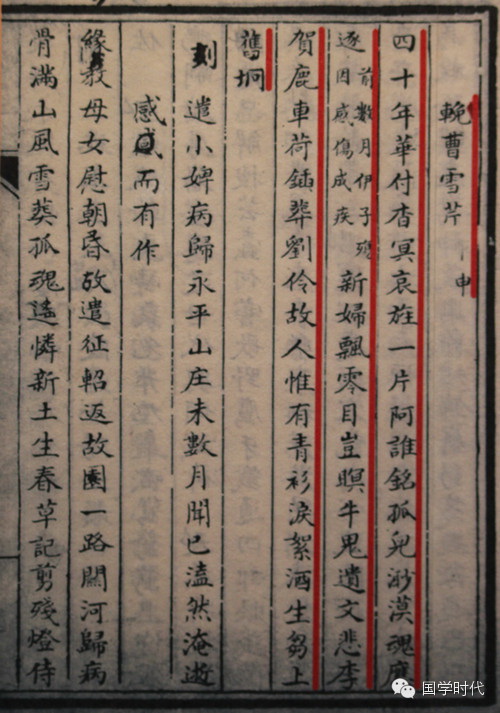 輓曹雪芹 申
四十年華付杳冥哀旌一片阿誰銘孤兒渺漠魂應
逐前數月伊子殤因感傷成疾新婦飄零目豈瞑牛鬼遺文悲李
賀鹿車荷鍤葬劉伶故人惟有青衫淚絮酒生芻上
舊坰
刻 遣小婢病歸永平山庄未數月聞已溘然淹逝
感而有作
緣教母女慰朝昏故遣征軺返故園一路關河歸病
骨滿山風雪葬孤魂遙憐新土生春草記剪殘燈侍
国学时代